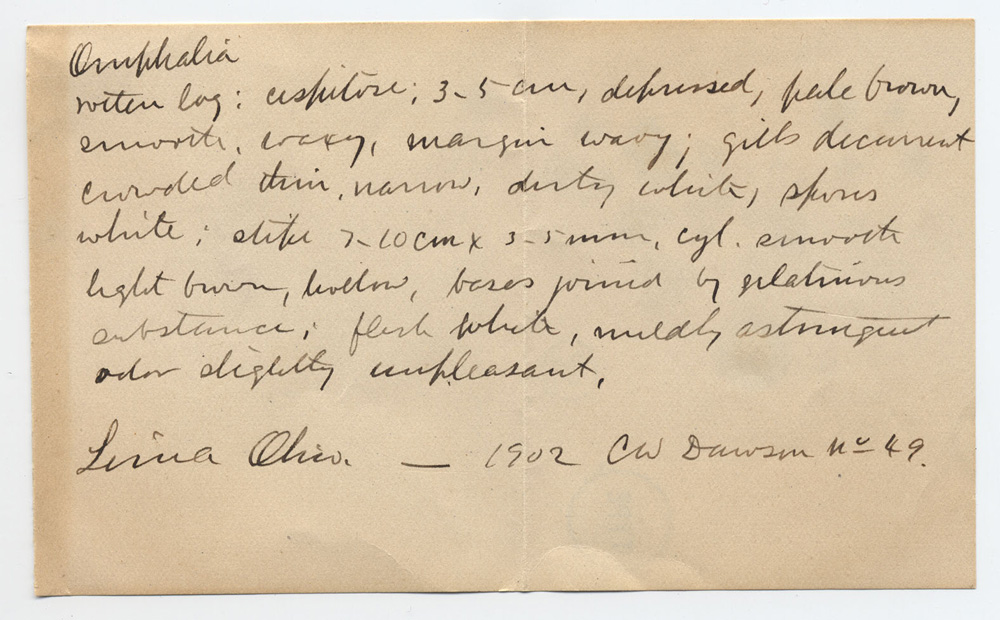 Omphalia
rotten log: cespitose; 3-5 cm, depressed, pale brown,
smooth, waxy, margin wavy; gills decurrent
crowded thin, narrow, dirty white, spores
white; stipe 7-10cm x 3-5 mm, cyl. smooth
light brown, hollow, bases joined by gelatinous
substance; flesh white, mildly astringent
odor slightly unpleasant,
Lima Ohio. — 1902 CW Dawson No 49.